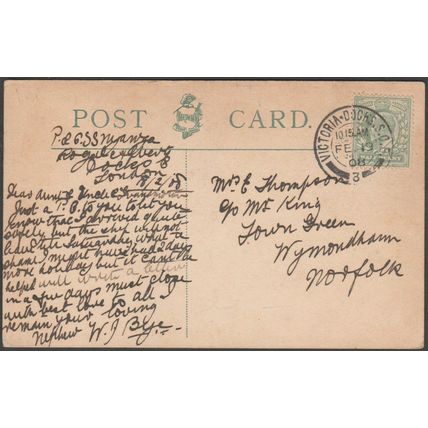 POST CARD.
P & O. SS Manora
Royal Albert
Docks E
London
18/2/08
Dear Aunt & Uncle &
Just a P.C. to let you
know that I arrived quite
safely but the ship will not
till Saturday what a
shame I might have had 2 days
more holiday but it cant be
helped will write a letter
in a few days must close
with best love to all I
remain your loving
nephew W. J. Bye
Mrs E Thompson
c/o Mr King
Town Green
Wymondham
Norfolk
VICTORIA-DOCKS. S.O.
10.15 AM
FE 19
08
3